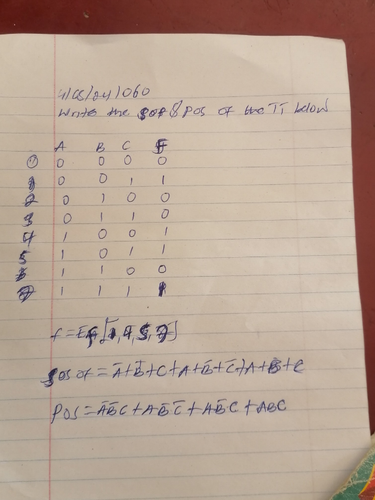 4/05/24/060
Write the SOP & POS of the TT below
A B C F
0 0 0 0 0
1 0 0 1 1
2 0 1 0 0
3 0 1 1 0
4 1 0 0 1
5 1 0 1 1
6 1 1 0 0
7 1 1 1 1
f = [1, 4, 5, 7]
of = A̅+B̅+C+A+B̅+C̅+A+B̅+C
POS = A̅B̅C + AB̅C̅ + AB̅C + ABC